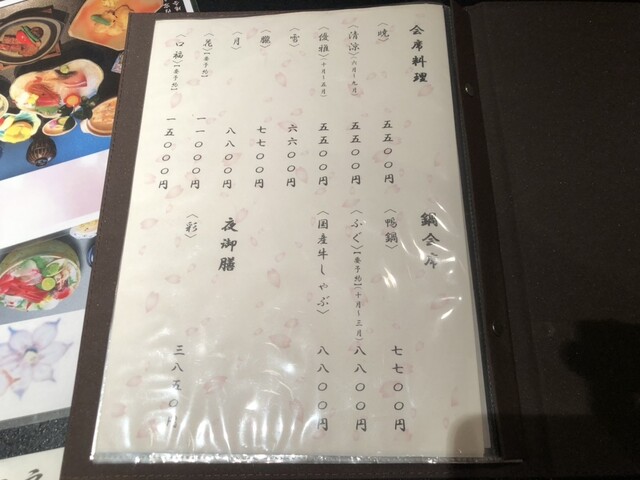 会席料理
〈暁〉 五五〇〇円
〈清涼〉（六月～九月） 五五〇〇円
〈優雅〉（十月～五月） 五五〇〇円
〈雪〉 六六〇〇円
〈朧〉 七七〇〇円
〈月〉 八八〇〇円
〈花〉【要予約】 一一〇〇〇円
〈口福〉【要予約】 一五〇〇〇円
鍋会席
〈鴨鍋〉 七七〇〇円
〈ふぐ〉【要予約】（十月～三月） 八八〇〇円
〈国産牛しゃぶ〉 八八〇〇円
夜御膳
〈彩〉 三八五〇円